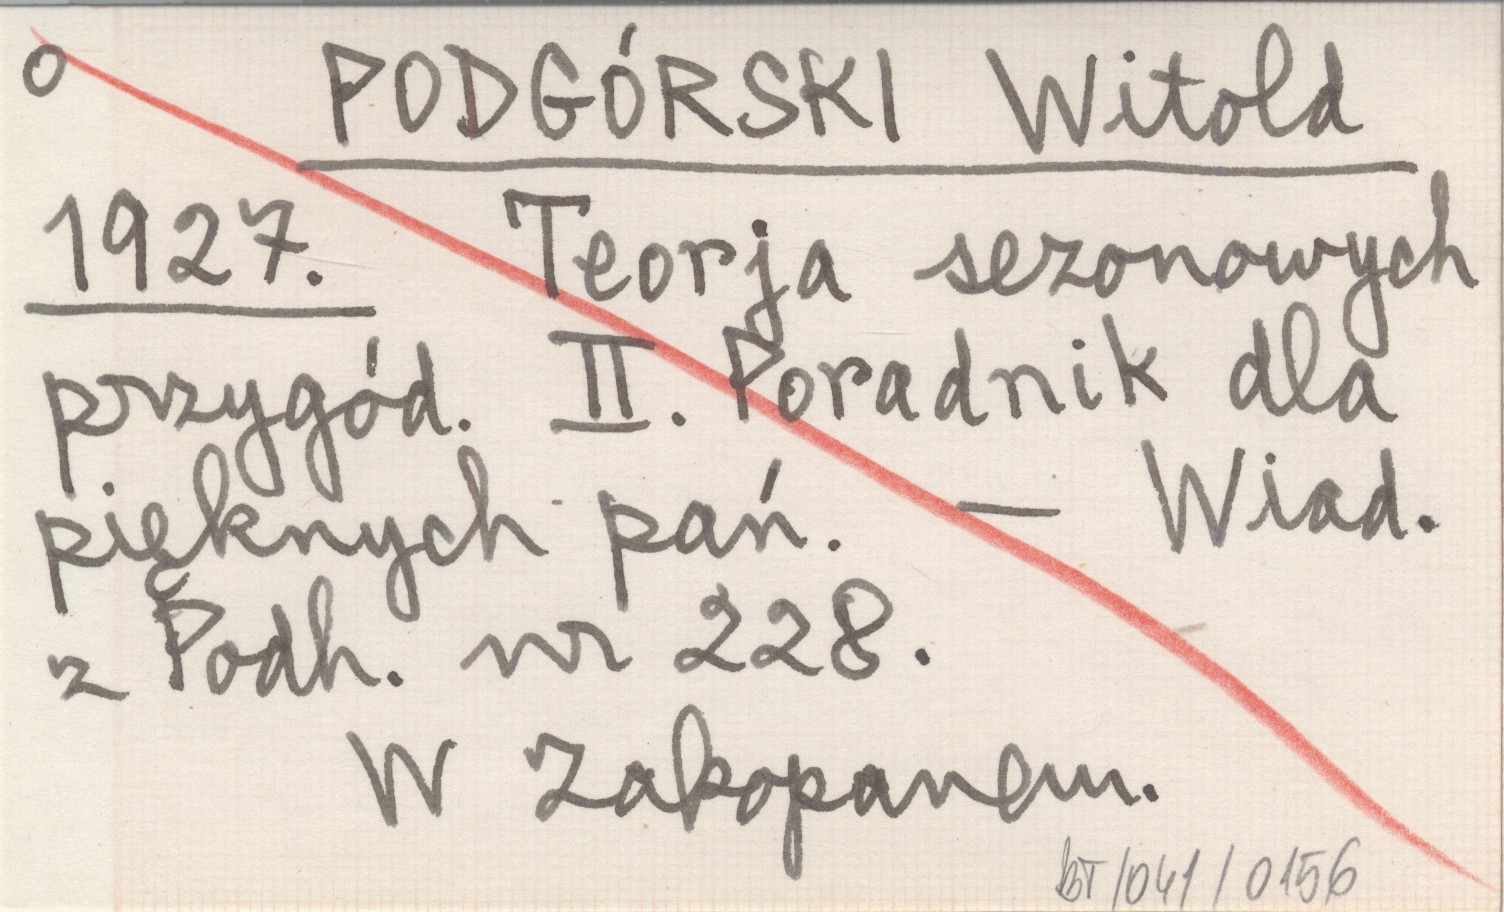 o PODGÓRSKI Witold
1927. Teorja sezonowych
przygód. II. Poradnik dla
pięknych pań. — Wiad.
z Podh. nr 228.
W Zakopanem.
BT/041/0156